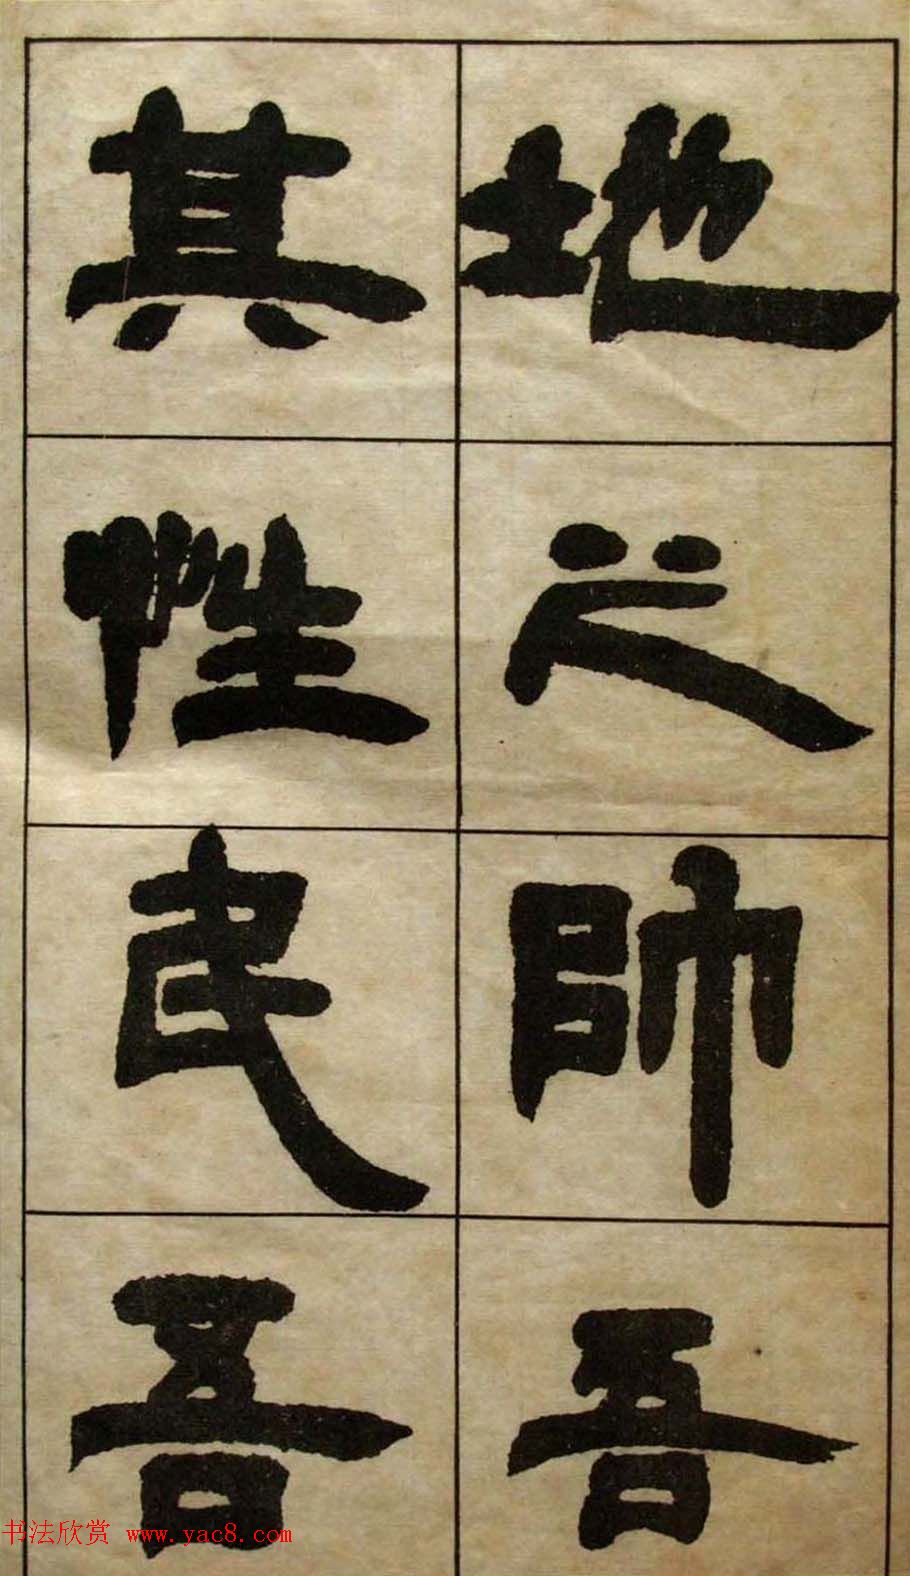 地之帥吾
其性民吾
书法欣赏 www.yac8.com